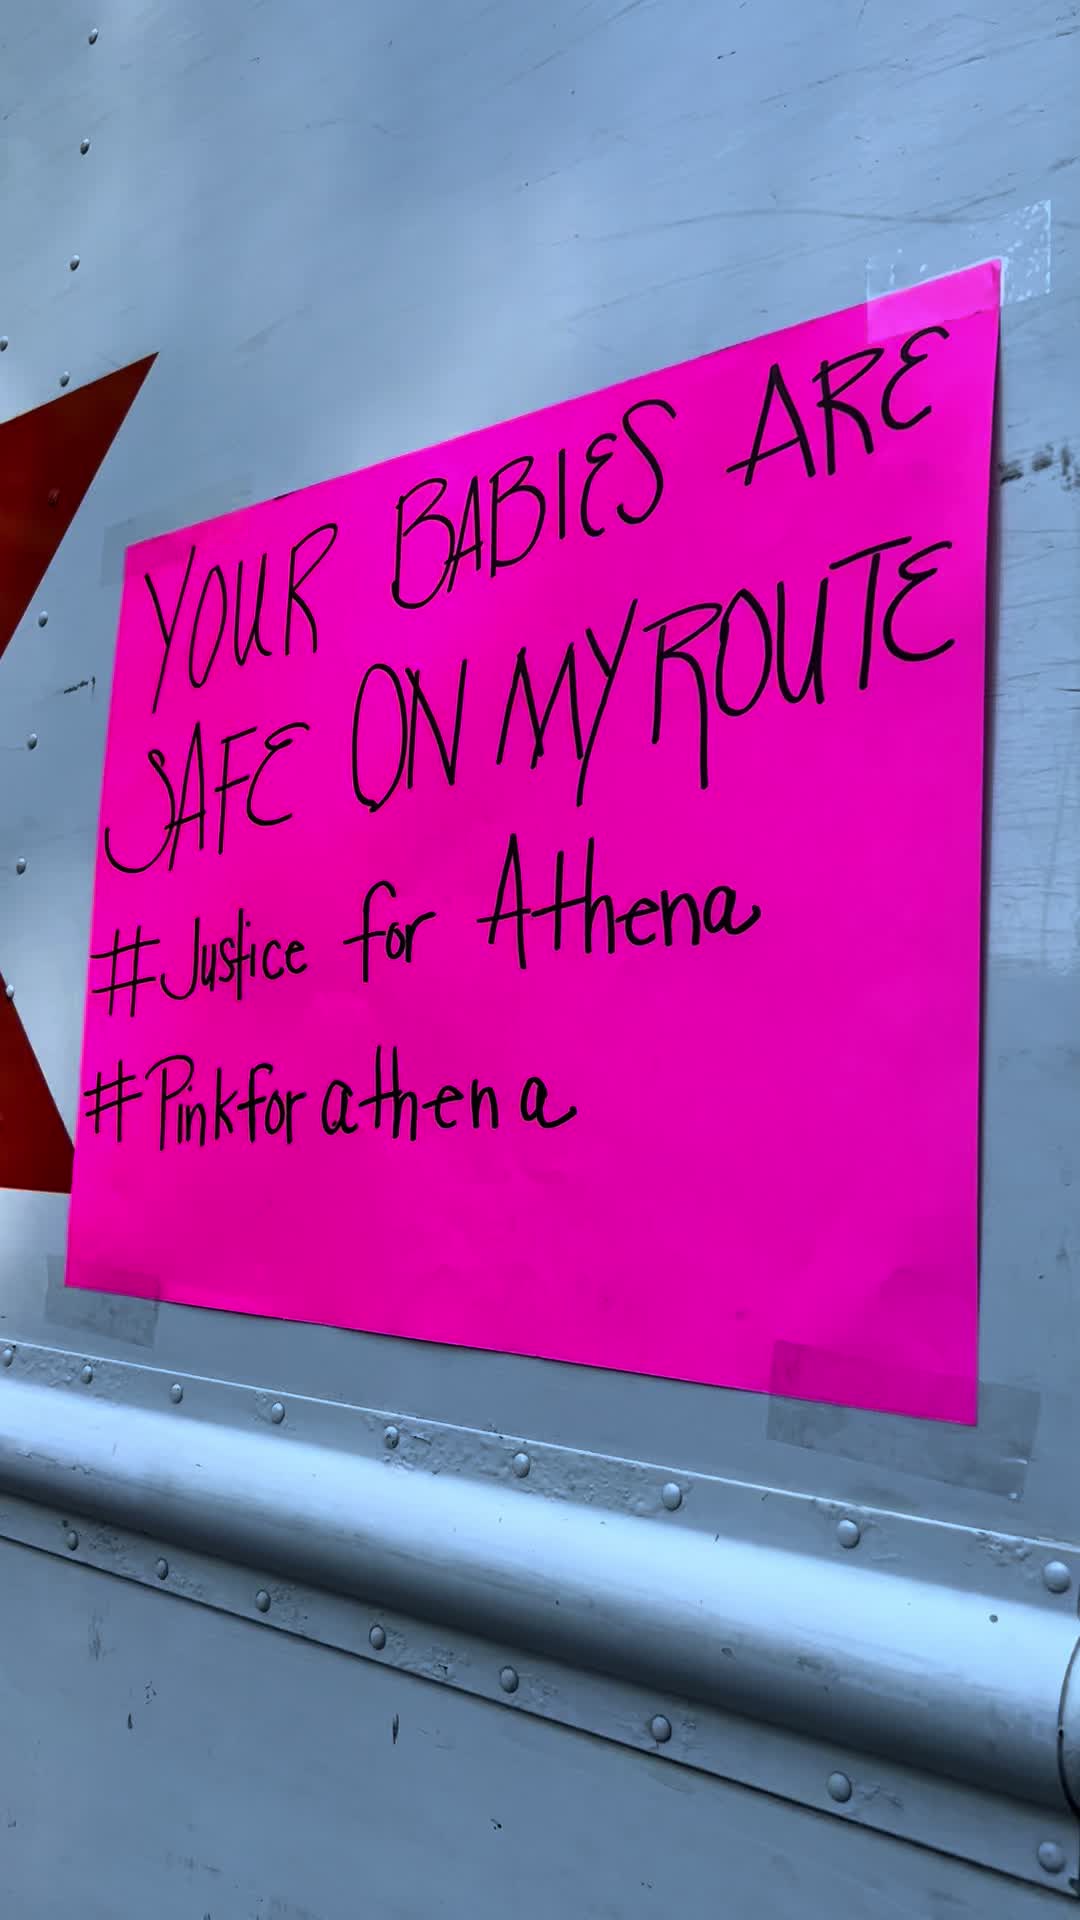 YOUR BABIES ARE
SAFE ON MY ROUTE
#Justice for Athena
#Pinkforathena